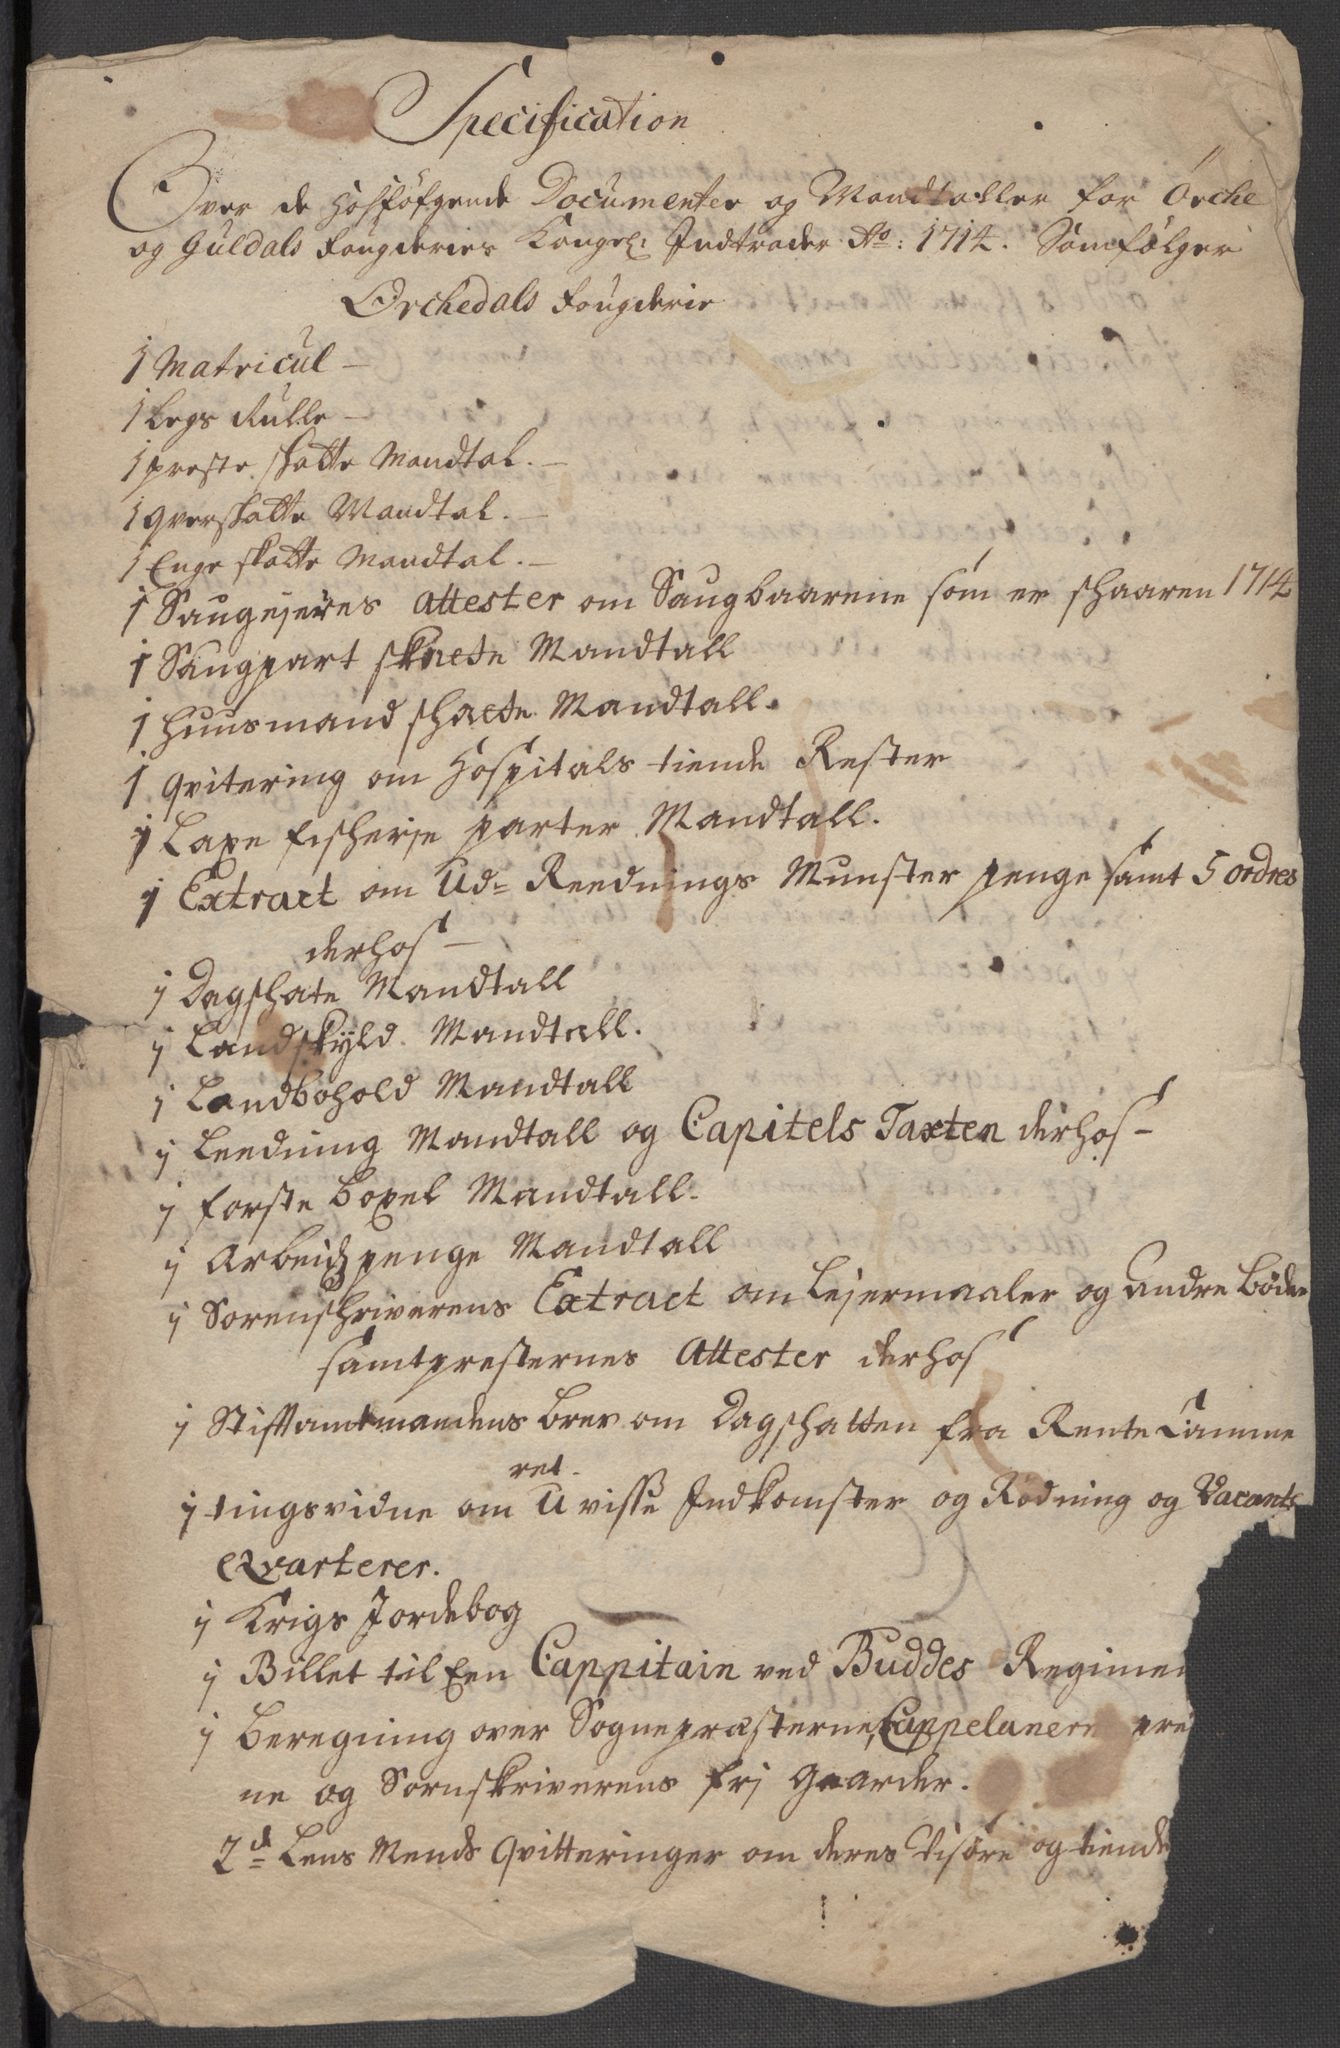 Specification
Over de hosföÿgende Documenter og Mandtaller for Örche
og Guldals fougderies Kongel: Indtrader Ao: 1714. Som følger
Orchedals fougderie
1 Matricul –
1 Legs Rulle –
1 preste skatte Mandtal. –
1 qvernskatte Mandtal. –
1 Enge skatte Mandtal. –
1 Saugejernes Attester om Saugbaarene som er skaaren 1714
1 Saugpart skaete Mandtall
1 Huusmand skaete Mandtall.
1 Qvitering om Hospitals tiende Rester
1 Laxe fischerje parter Mandtall.
1 Extract om Ud= Reednings Munster penge samt 5 ordres
derhos –
j Dagskate Mandtall
j Landskyld Mandtall.
j Landbohold Mandtall
j Leeduing Mandtall og Capitels Taxten derhos –
j forste Boxel Mandtall.
j Arbeidz penge Mandtall
j Sorenschriverens Extract om Lejermaaler og Andre Böder
samt presternes Attester derhos
j Stiftamtmandens brev om Dagskatten fra Rente Camme
ret.
j tingsvidne om U visse Indkomster og Rödning og Vacants
Qvarterer.
j Krigs Jordebog
j Billet til Een Cappitain ved Buddes Regimen
j Beregning over Sognepræsterne, Cappelanern pre
ne og Sornskriverens frj Gaarder.
2d= Lens Mends Qvitteringer om deres Tisöre og tiende